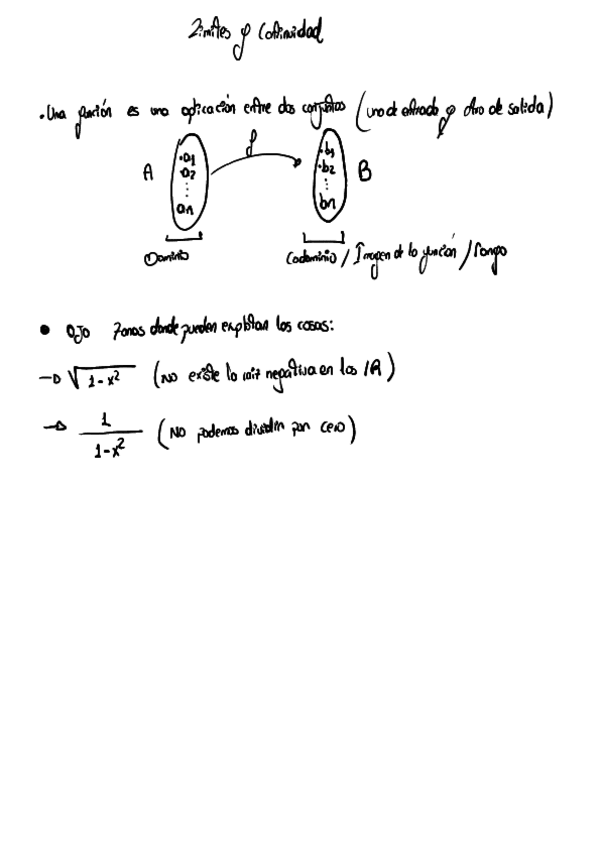 Límites y Continuidad
• Una función es una aplicación entre dos conjuntos (uno de entrada y otro de salida)
f
A
•a1
•a2
⋮
an
•b1
•b2
⋮
bn
B
Dominio
Codominio / Imagen de la función / rango
• OJO Zonas donde pueden explotar las cosas:
→ √(1-x²) (No existe la raíz negativa en los ℝ)
→ 1/(1-x²) (No podemos dividir por cero)